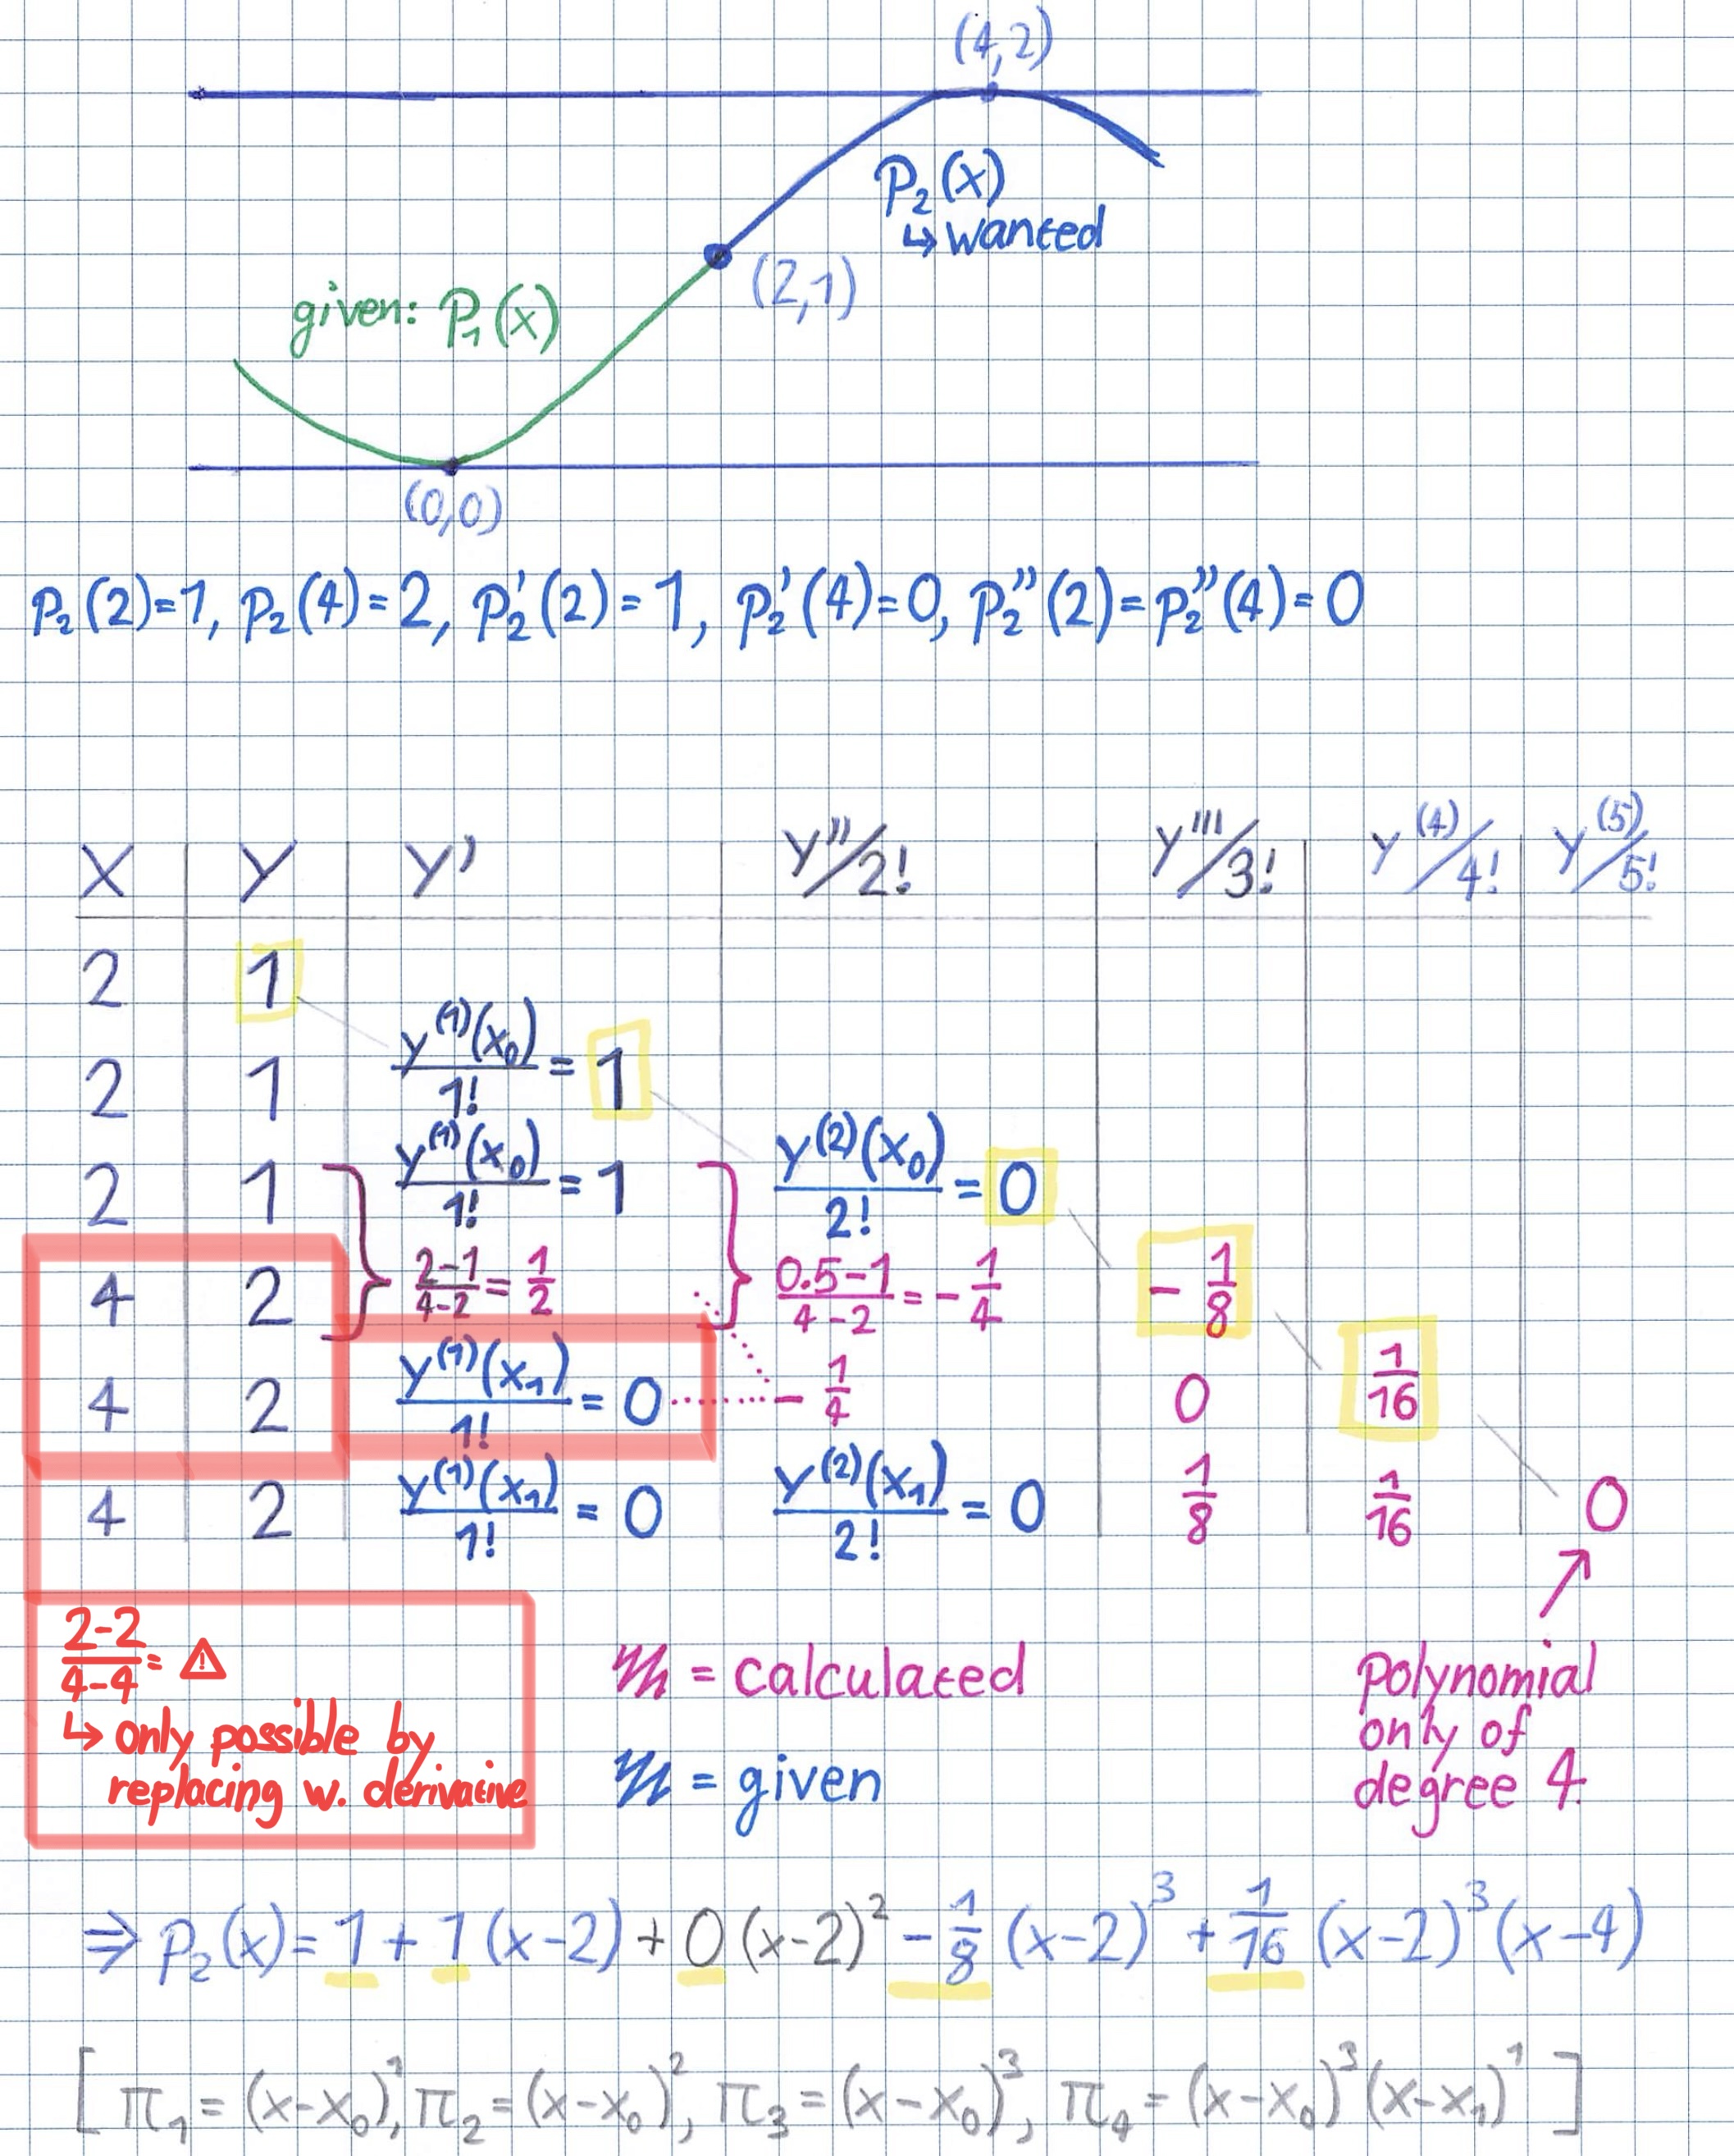 (4,2)
P₂(x)
↳ wanted
(2,1)
given: P₁(x)
(0,0)
p₂(2)=1, p₂(4)=2, p₂'(2)=1, p₂'(4)=0, p₂''(2)=p₂''(4)=0
x y y' y''/2! y'''/3! y⁽⁴⁾/4! y⁽⁵⁾/5!
2 1
y⁽¹⁾(x₀)/1! = 1
2 1
y⁽¹⁾(x₀)/1! = 1 y⁽²⁾(x₀)/2! = 0
2 1
4 2 (2-1)/(4-2) = 1/2 (0.5-1)/(4-2) = -1/4 -1/8
4 2 y⁽¹⁾(x₁)/1! = 0 -1/4 0 1/16
4 2 y⁽¹⁾(x₁)/1! = 0 y⁽²⁾(x₁)/2! = 0 1/8 1/16 0
(2-2)/(4-4) = ⚠
↳ only possible by
replacing w. derivative
= calculated
= given
polynomial
only of
degree 4.
⇒ p₂(x) = 1 + 1(x-2) + 0(x-2)² - 1/8 (x-2)³ + 1/16 (x-2)³(x-4)
[ π₁ = (x-x₀)¹, π₂ = (x-x₀)², π₃ = (x-x₀)³, π₄ = (x-x₀)³(x-x₁)¹ ]